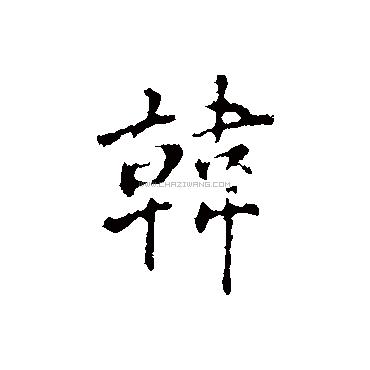 韓
WWW.CHAZIWANG.COM